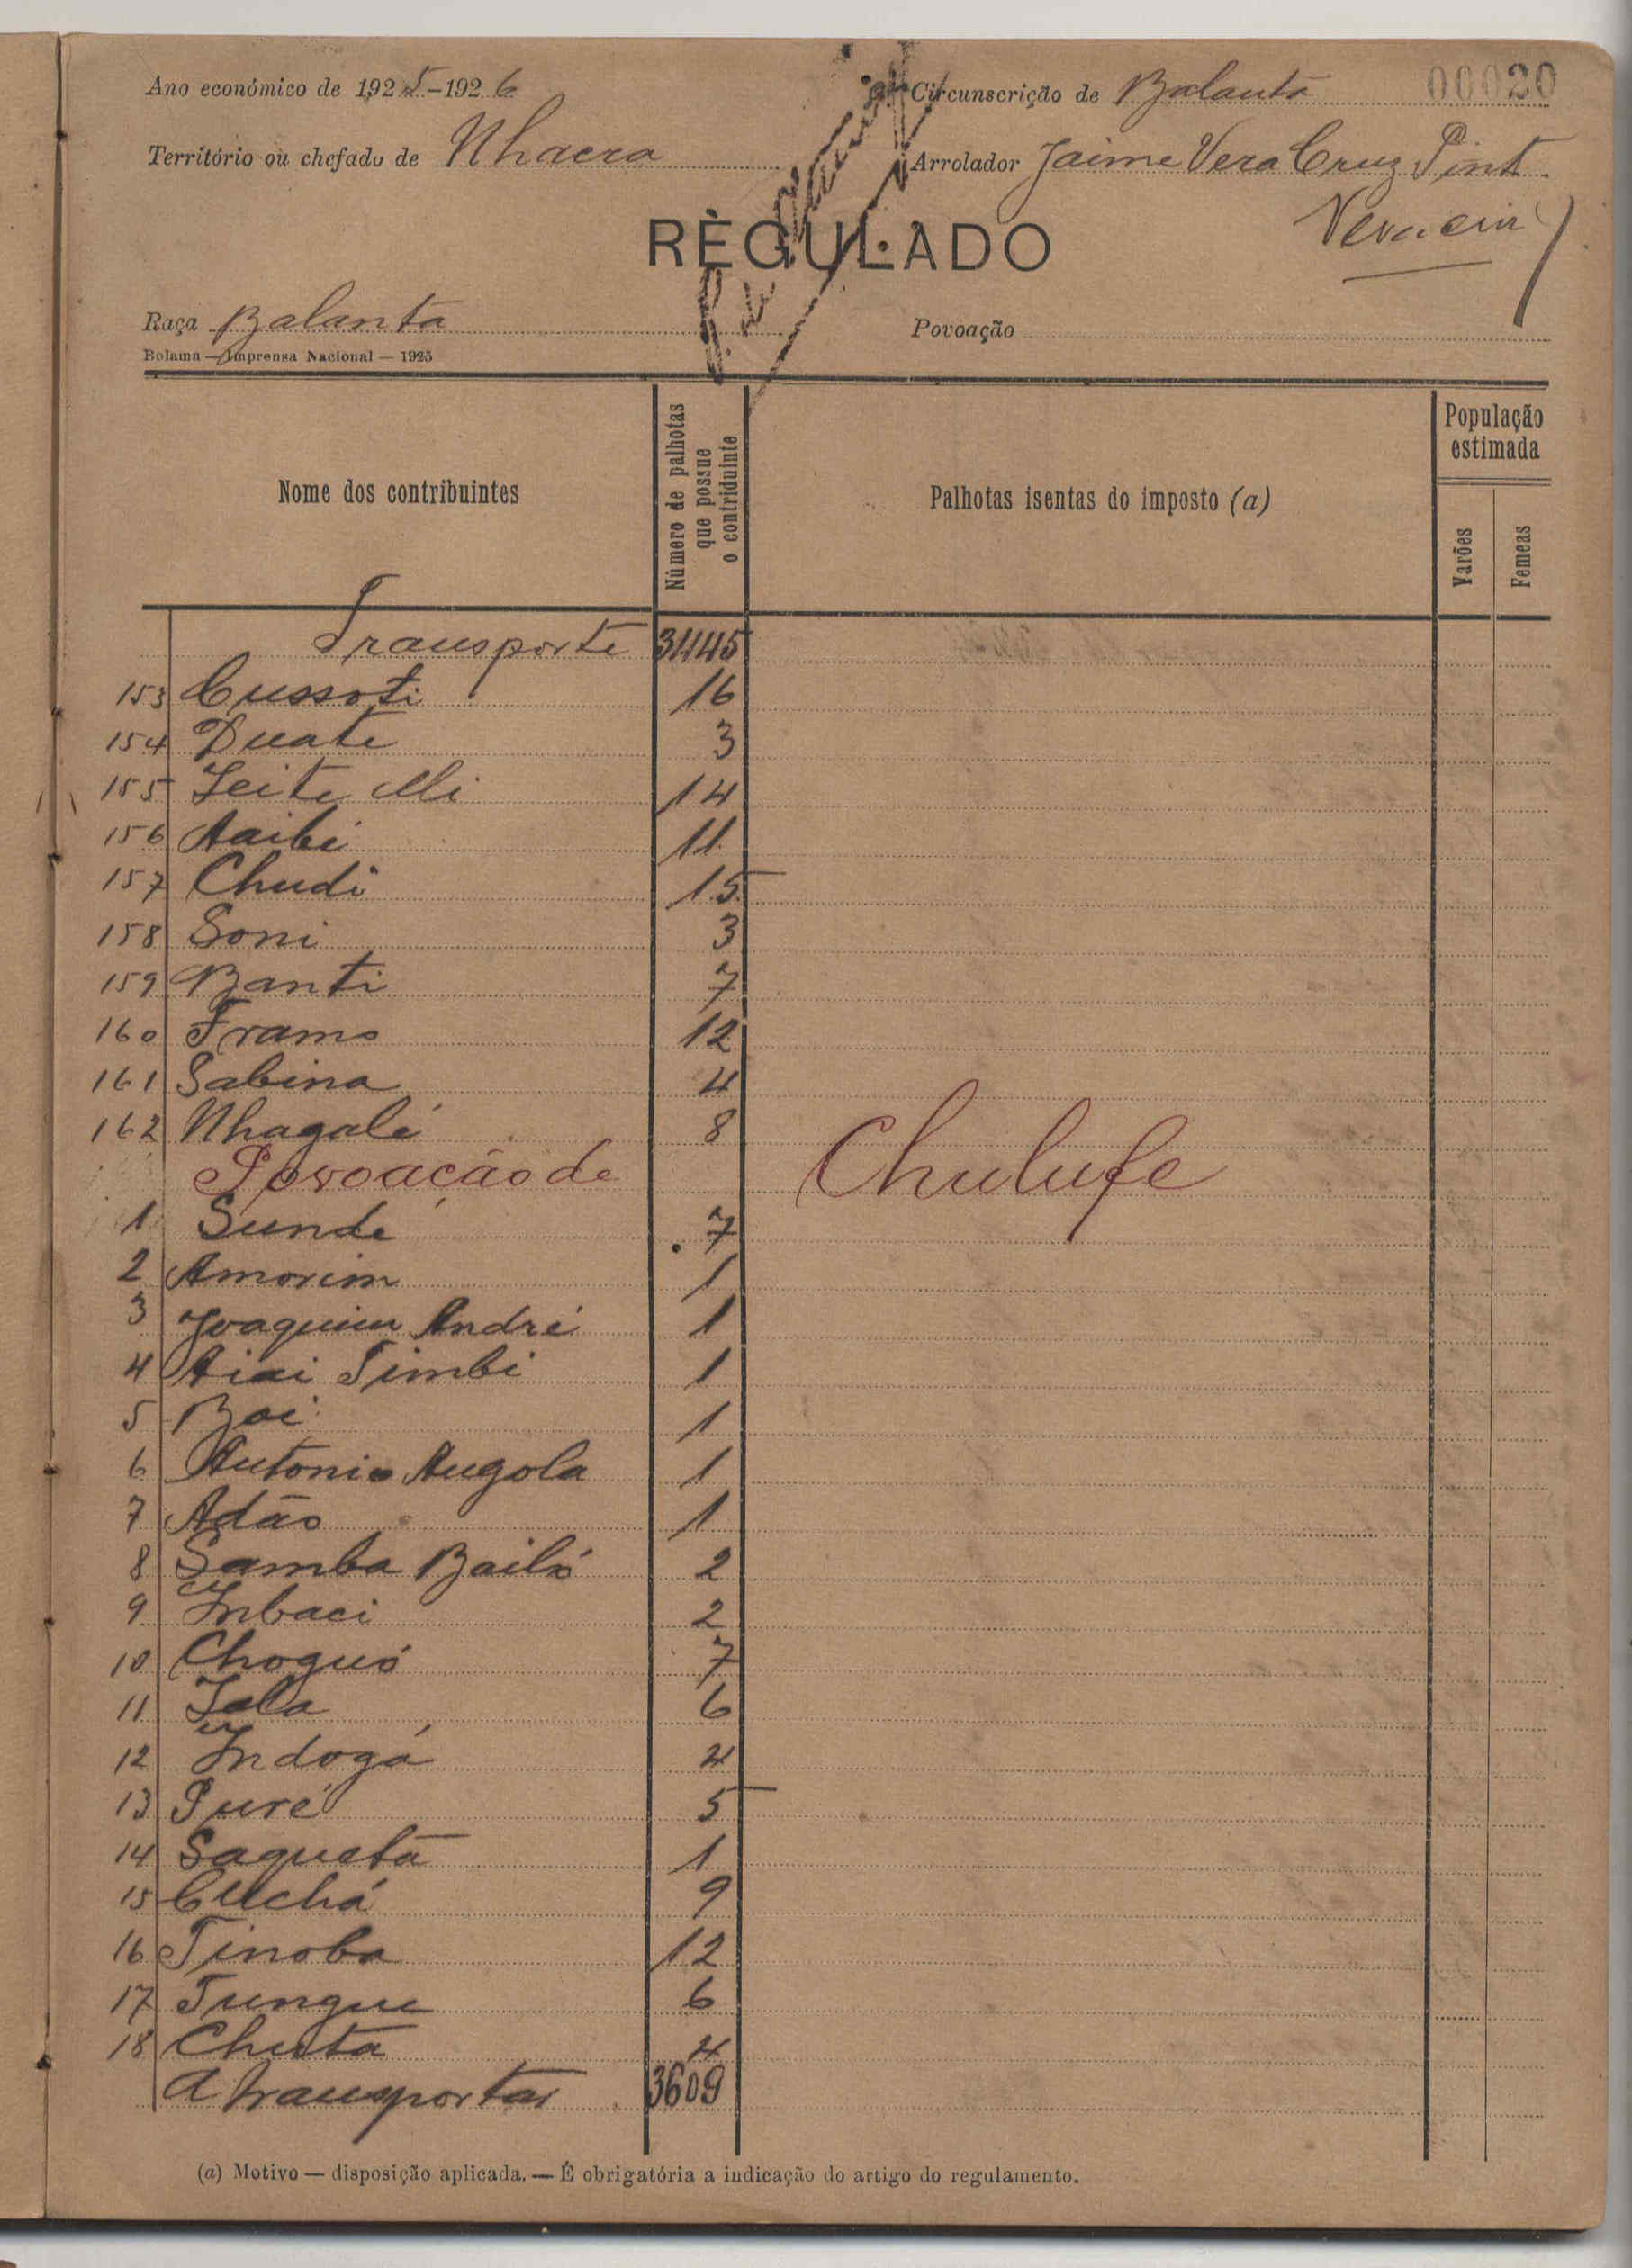 Ano económico de 1925-1926
Circunscrição de Balanta
00020
Território ou chefado de Nhacra
Arrolador Jaime Vera Cruz Pint
RÈGULADO
Raça Balanta
Povoação
Bolama — Imprensa Nacional — 1925
Nome dos contribuintes
Número de palhotas que possue o contriduinte
Palhotas isentas do imposto (a)
População estimada
Varões
Femeas
Transporte 3445
153 Cussoti 16
154 Duate 3
155 Leite Mi 14
156 Aaibé 11
157 Chudi 15
158 Soni 3
159 Banti 7
160 Framo 12
161 Sabina 4
162 Nhagalé 8
Povoação de Chulufe
1 Sunde 7
2 Amorim 1
3 Joaquim André 1
4 Aiai Timbi 1
5 Boi 1
6 Antonio Angola 1
7 Adão 1
8 Samba Bailó 2
9 Inbaci 2
10 Choguó 7
11 Iala 6
12 Indogá 4
13 Puré 5
14 Saquata 1
15 Cuchá 9
16 Tinoba 12
17 Tungue 6
18 Chuta 4
A transportar 3609
(a) Motivo — disposição aplicada. — É obrigatória a indicação do artigo do regulamento.